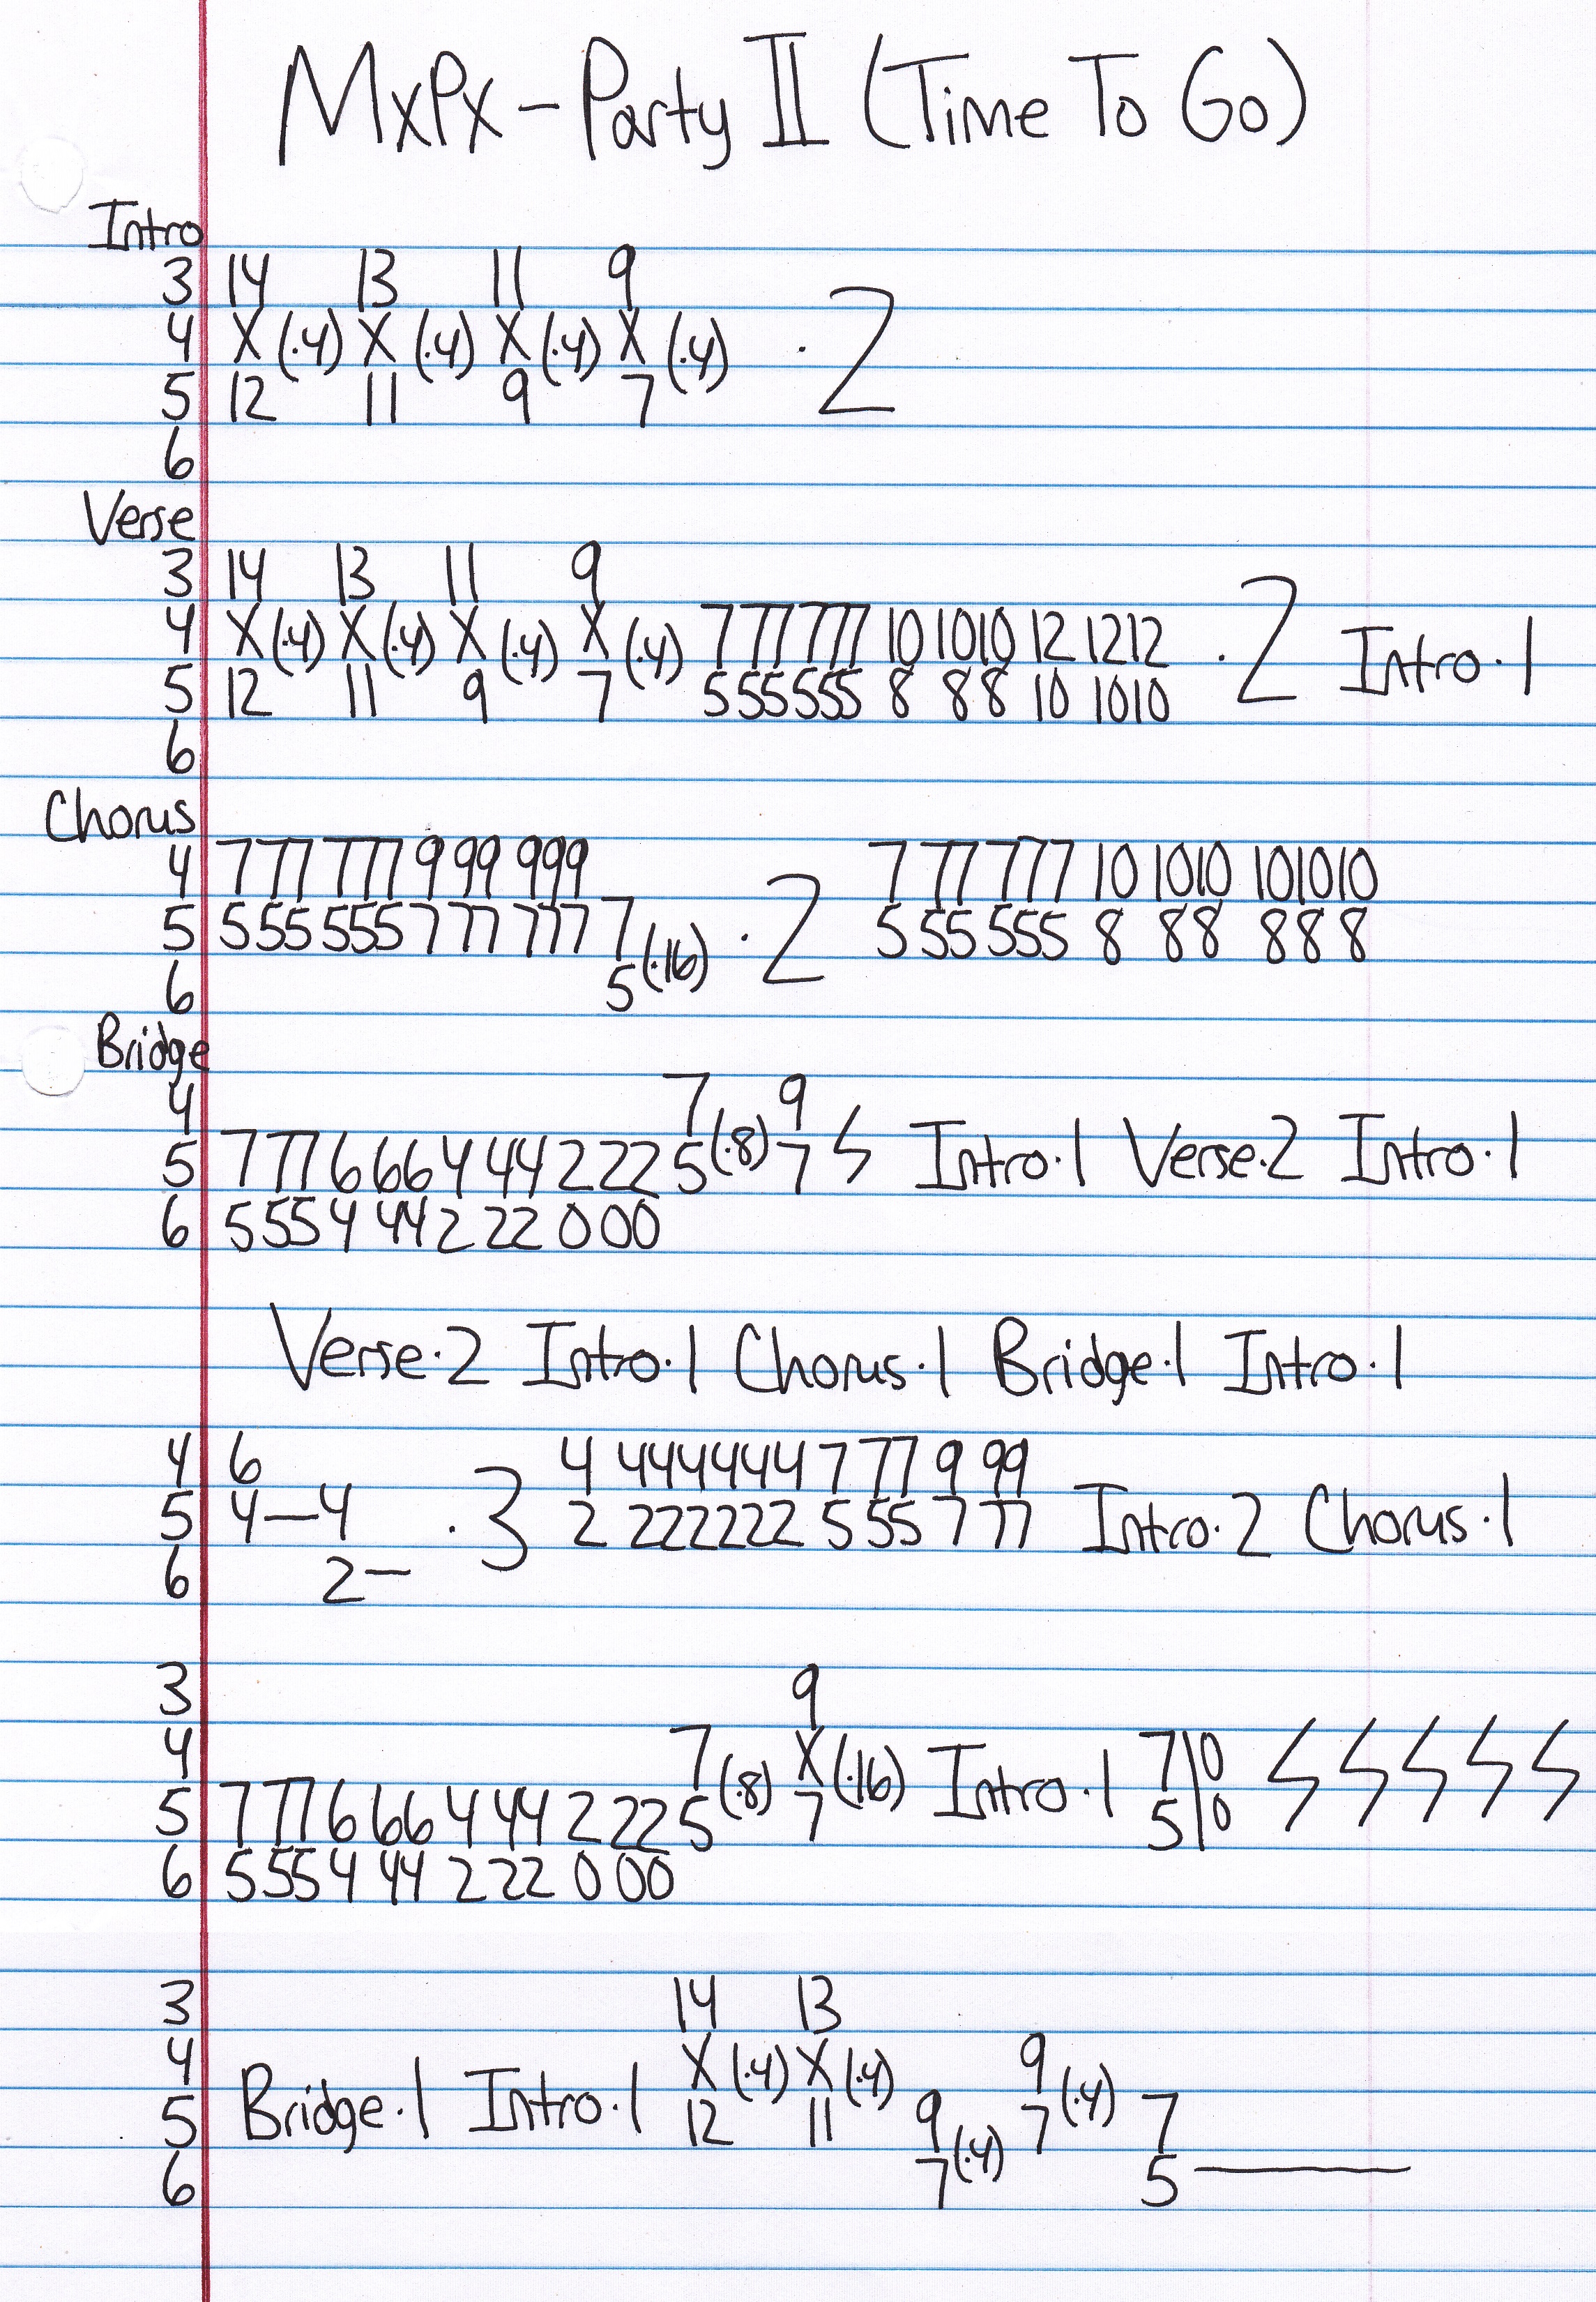 MxPx - Party II (Time To Go)
Intro
3 14 13 11 9
4 X (·4) X (·4) X (·4) X (·4) · 2
5 12 11 9 7
6
Verse
3 14 13 11 9
4 X (·4) X (·4) X (·4) X (·4) 7 77 777 10 1010 12 1212 · 2 Intro·1
5 12 11 9 7 5 55 555 8 88 10 1010
6
Chorus
4 7 77 777 9 99 999 7 77 777 10 1010 101010
5 5 55 555 7 77 777 7 (·16) · 2 5 55 555 8 88 888
6 5
Bridge
4 7 9
5 7 77 6 66 4 44 2 22 5 (·8) 7 Intro·1 Verse·2 Intro·1
6 5 55 4 44 2 22 0 00
Verse·2 Intro·1 Chorus·1 Bridge·1 Intro·1
4 6 4 444444 7 77 9 99
5 4—4 · 3 2 222222 5 55 7 77 Intro·2 Chorus·1
6 2—
3 9
4 7 (·8) X (·16) Intro·1 7|0
5 7 77 6 66 4 44 2 22 5 7 5|0
6 5 55 4 44 2 22 0 00
3 14 13
4 X (·4) X (·4) 9 (·4)
5 Bridge·1 Intro·1 12 11 9 7 7
6 7 (·4) 5———